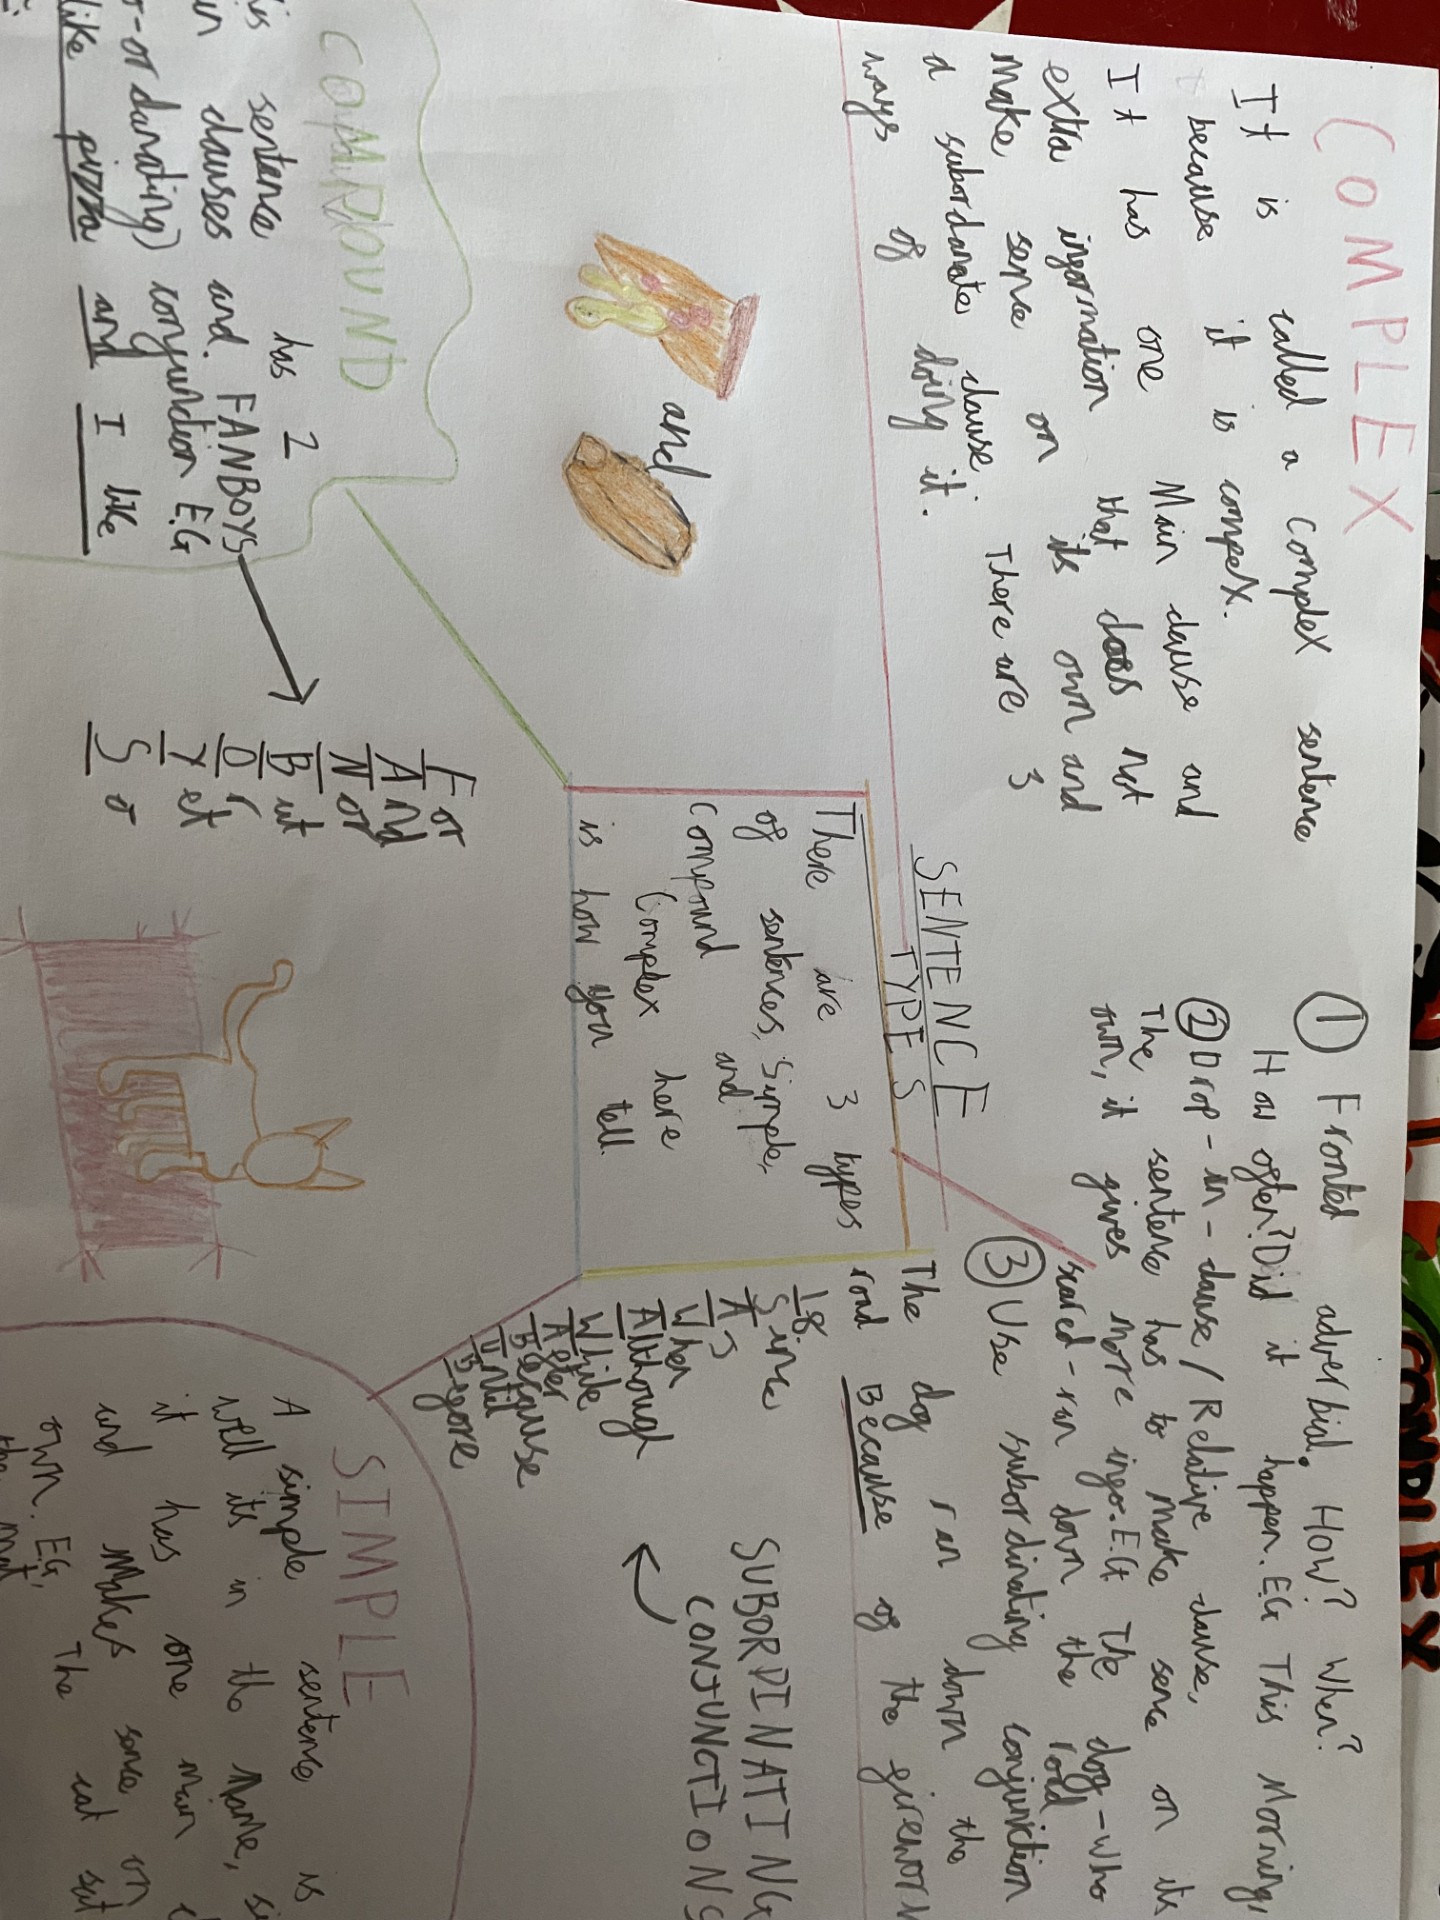 COMPLEX
It is called a complex sentence
because it is compex.
It has one Main clause and
extra information that does not
make sense on its own and
a subordanate clause. There are 3
ways of doing it.
① Fronted adverbial. How? When?
How often? Did it happen. EG This Morning,
② Drop-in-clause/Relative clause,
The sentence has to make sence on its
own, it gives more info. EG The dog-who
scared-ran down the road
③ Use subordinating conjunction
The dog ran down the
road Because of the firework
SENTENCE
TYPES
There are 3 types
of sentences, Simple,
Compound and
Complex here
is how you tell.
SUBORDINATING
CONJUNCTIONS
If
Since
As
When
Although
While
After
Because
Until
Before
and
COMPOUND
sentence has 2
clauses and FANBOYS
conjunction EG
like pizza and I like
For
And
Nor
But
Or
Yet
So
SIMPLE
A simple sentence is
well its in the Name,
it has one main
and Makes sence on
own. EG, The cat sat
the mat
COMPLEX